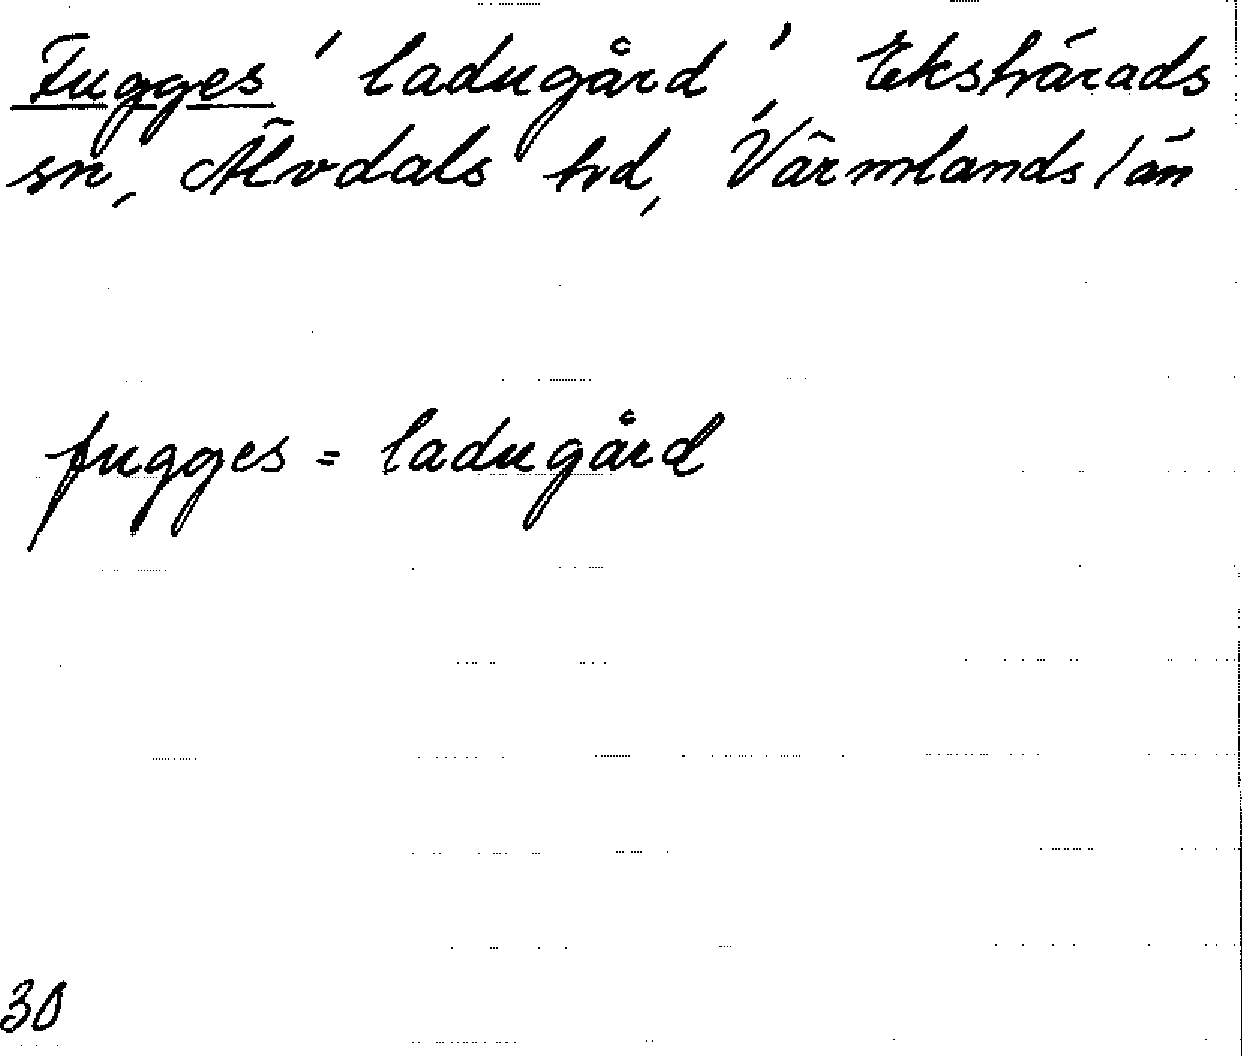 Fugges 'ladugård', Ekshärads
sn, Älvdals hd, Värmlands län
fugges = ladugård
30